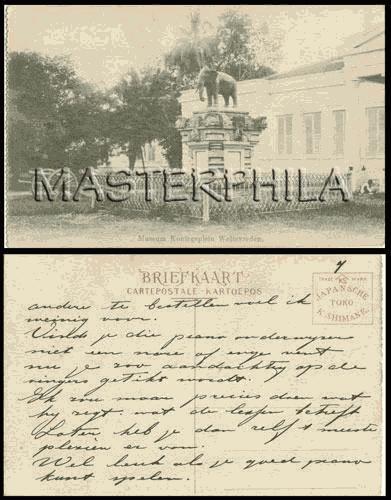 MASTERPHILA
Museum Koningsplein Weltevreden.
BRIEFKAART
CARTEPOSTALE - KARTOEPOS
TRADE MARK
KS
JAPANSCHE
TOKO
K. SHIMANE.
andere te bestellen voel ik
weinig voor.
Vindt je die piano onderwijzer
niet een nare of enge vent
nu je zoo aandachtig op de
vingers getikt wordt.
Ik zou maar precies doen wat
hij zegt. wat de lessen betreft
Later heb je dan zelf 't meeste
plezier er van.
Wel leuk als je goed piano
kunt spelen.